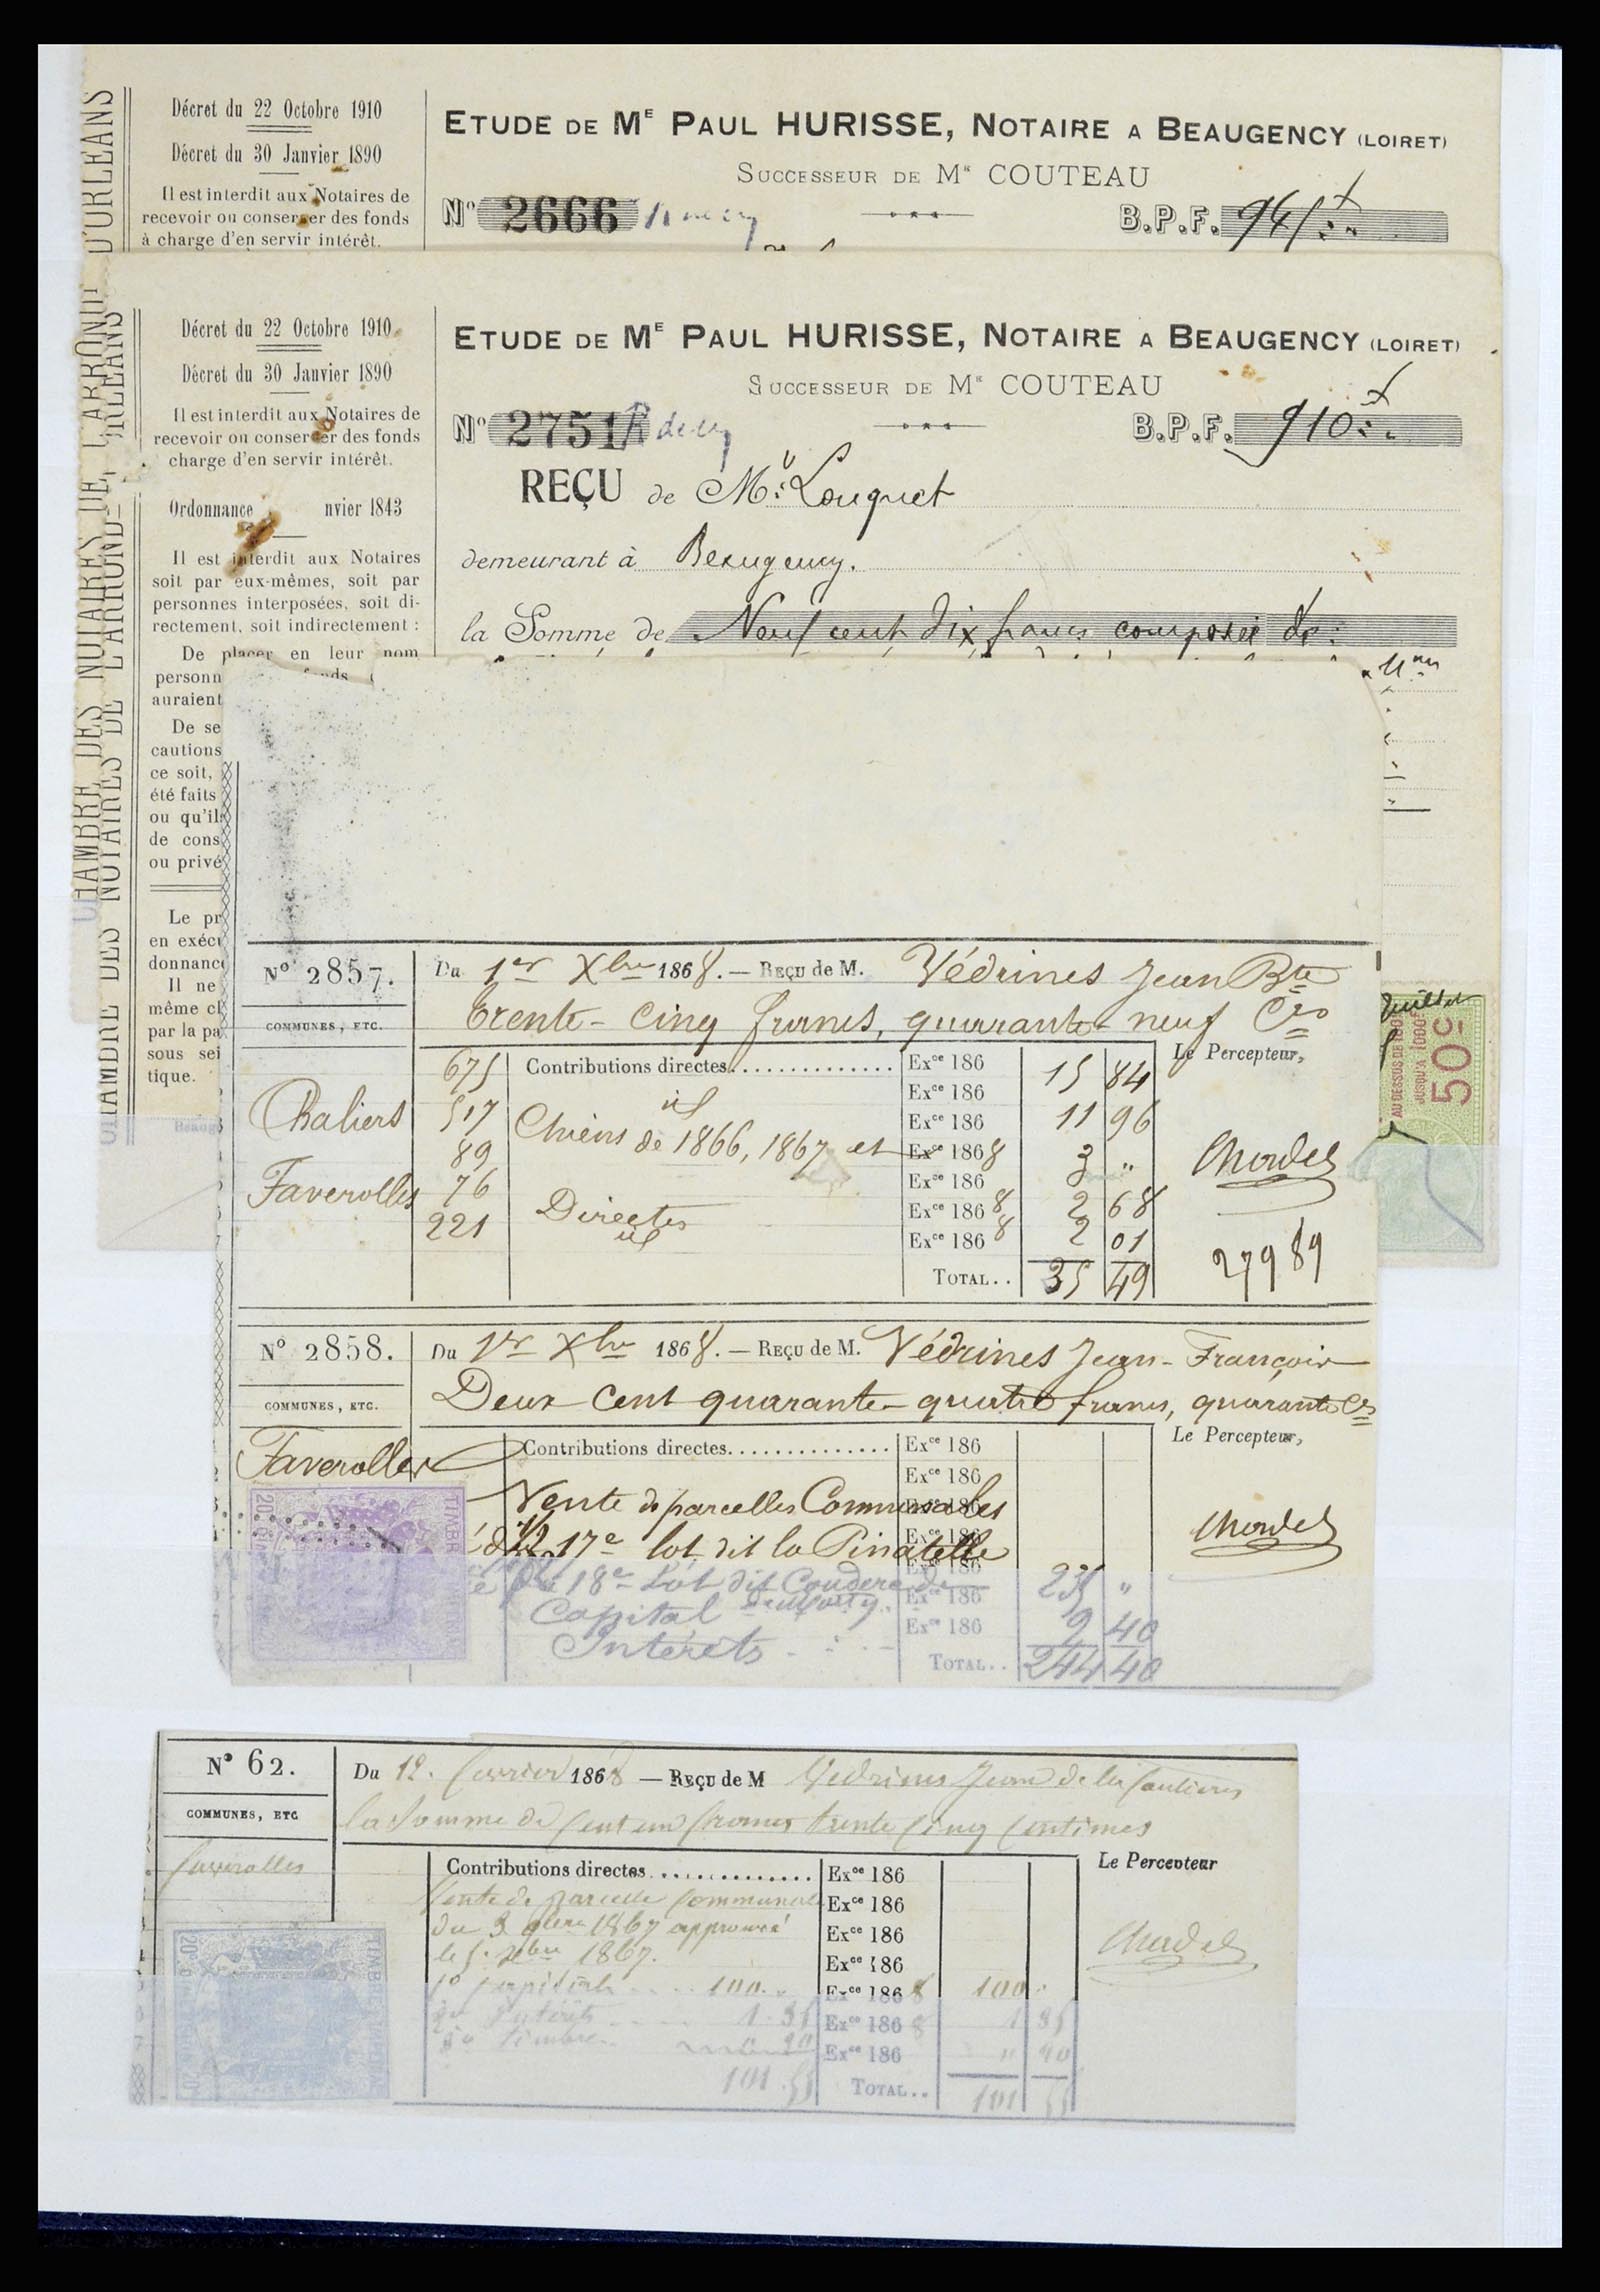 Décret du 22 Octobre 1910
Décret du 30 Janvier 1890
Il est interdit aux Notaires de
recevoir ou conserver des fonds
à charge d'en servir intérêt.
D'ORLEANS
ETUDE DE Mᴱ PAUL HURISSE, NOTAIRE A BEAUGENCY (LOIRET)
SUCCESSEUR DE Mᴱ COUTEAU
N° 2666
B.P.F. 941
Décret du 22 Octobre 1910
Décret du 30 Janvier 1890
Il est interdit aux Notaires de
recevoir ou conserver des fonds
charge d'en servir intérêt.
Ordonnance nvier 1843
Il est interdit aux Notaires
soit par eux-mêmes, soit par
personnes interposées, soit di-
rectement, soit indirectement :
De placer en leur nom
personn
auraient
De se
cautions
ce soit,
été faits
ou qu'il
de cons
ou privé
Le pr
en exécu
donnance
Il ne
même cl
par la pa
sous sei
tique.
CHAMBRE DES NOTAIRES DE L'ARROND
CHAMBRE DES NOTAIRES DE L'ARROND
ETUDE DE Mᴱ PAUL HURISSE, NOTAIRE A BEAUGENCY (LOIRET)
SUCCESSEUR DE Mᴱ COUTEAU
N° 2751
B.P.F. 910
REÇU de Mr Louquet
demeurant à Beaugency.
la Somme de Neuf cent dix francs composée de:
AU DESSUS DE
JUSQU'A 1000F
50c
N° 2857. Du 1er Xbre 1868. — REÇU DE M. Védrines Jean Bte
Trente-Cinq francs, quarante-neuf Ces
COMMUNES, ETC.
Le Percepteur,
675 Contributions directes.............. Exce 186 15 84
Exce 186
Chaliers 517 Exce 186 11 96
89 Chiens de 1866, 1867 et Exce 1868 3 "
Faverolles 76 Exce 186
Directes Exce 1868 2 68
221 Exce 1868 2 01
TOTAL.. 35 49
279 89
N° 2858. Du 1er Xbre 1868. — REÇU de M. Védrines Jean-François
Deux cent quarante-quatre francs, quarante Ces
COMMUNES, ETC.
Le Percepteur,
Faverolles Contributions directes.............. Exce 186
Exce 186
Vente de parcelles Communales Exce 186
17e lot dit la Pinatelle Exce 186
18e Lot dit Exce 186
Capital Exce 186 235 "
Intérêts Exce 186 9 40
TOTAL.. 244 40
TIMBR
20
N° 62. Du 12 février 1868 — REÇU de M Vedrines Jean de
la Somme de Cent un francs trente Cinq Centimes
COMMUNES, ETC
Le Percepteur
Faverolles
Contributions directes.............. Exce 186
Vente de parcelle Communale Exce 186
du 3 1867 approuvé Exce 186
le 5 1867. Exce 186
1° Capital 100 Exce 1868 100
Intérêts 1.35 Exce 1868 1 35
timbre 20 Exce 186
101.55 TOTAL.. 101 55
TIMBRE
20